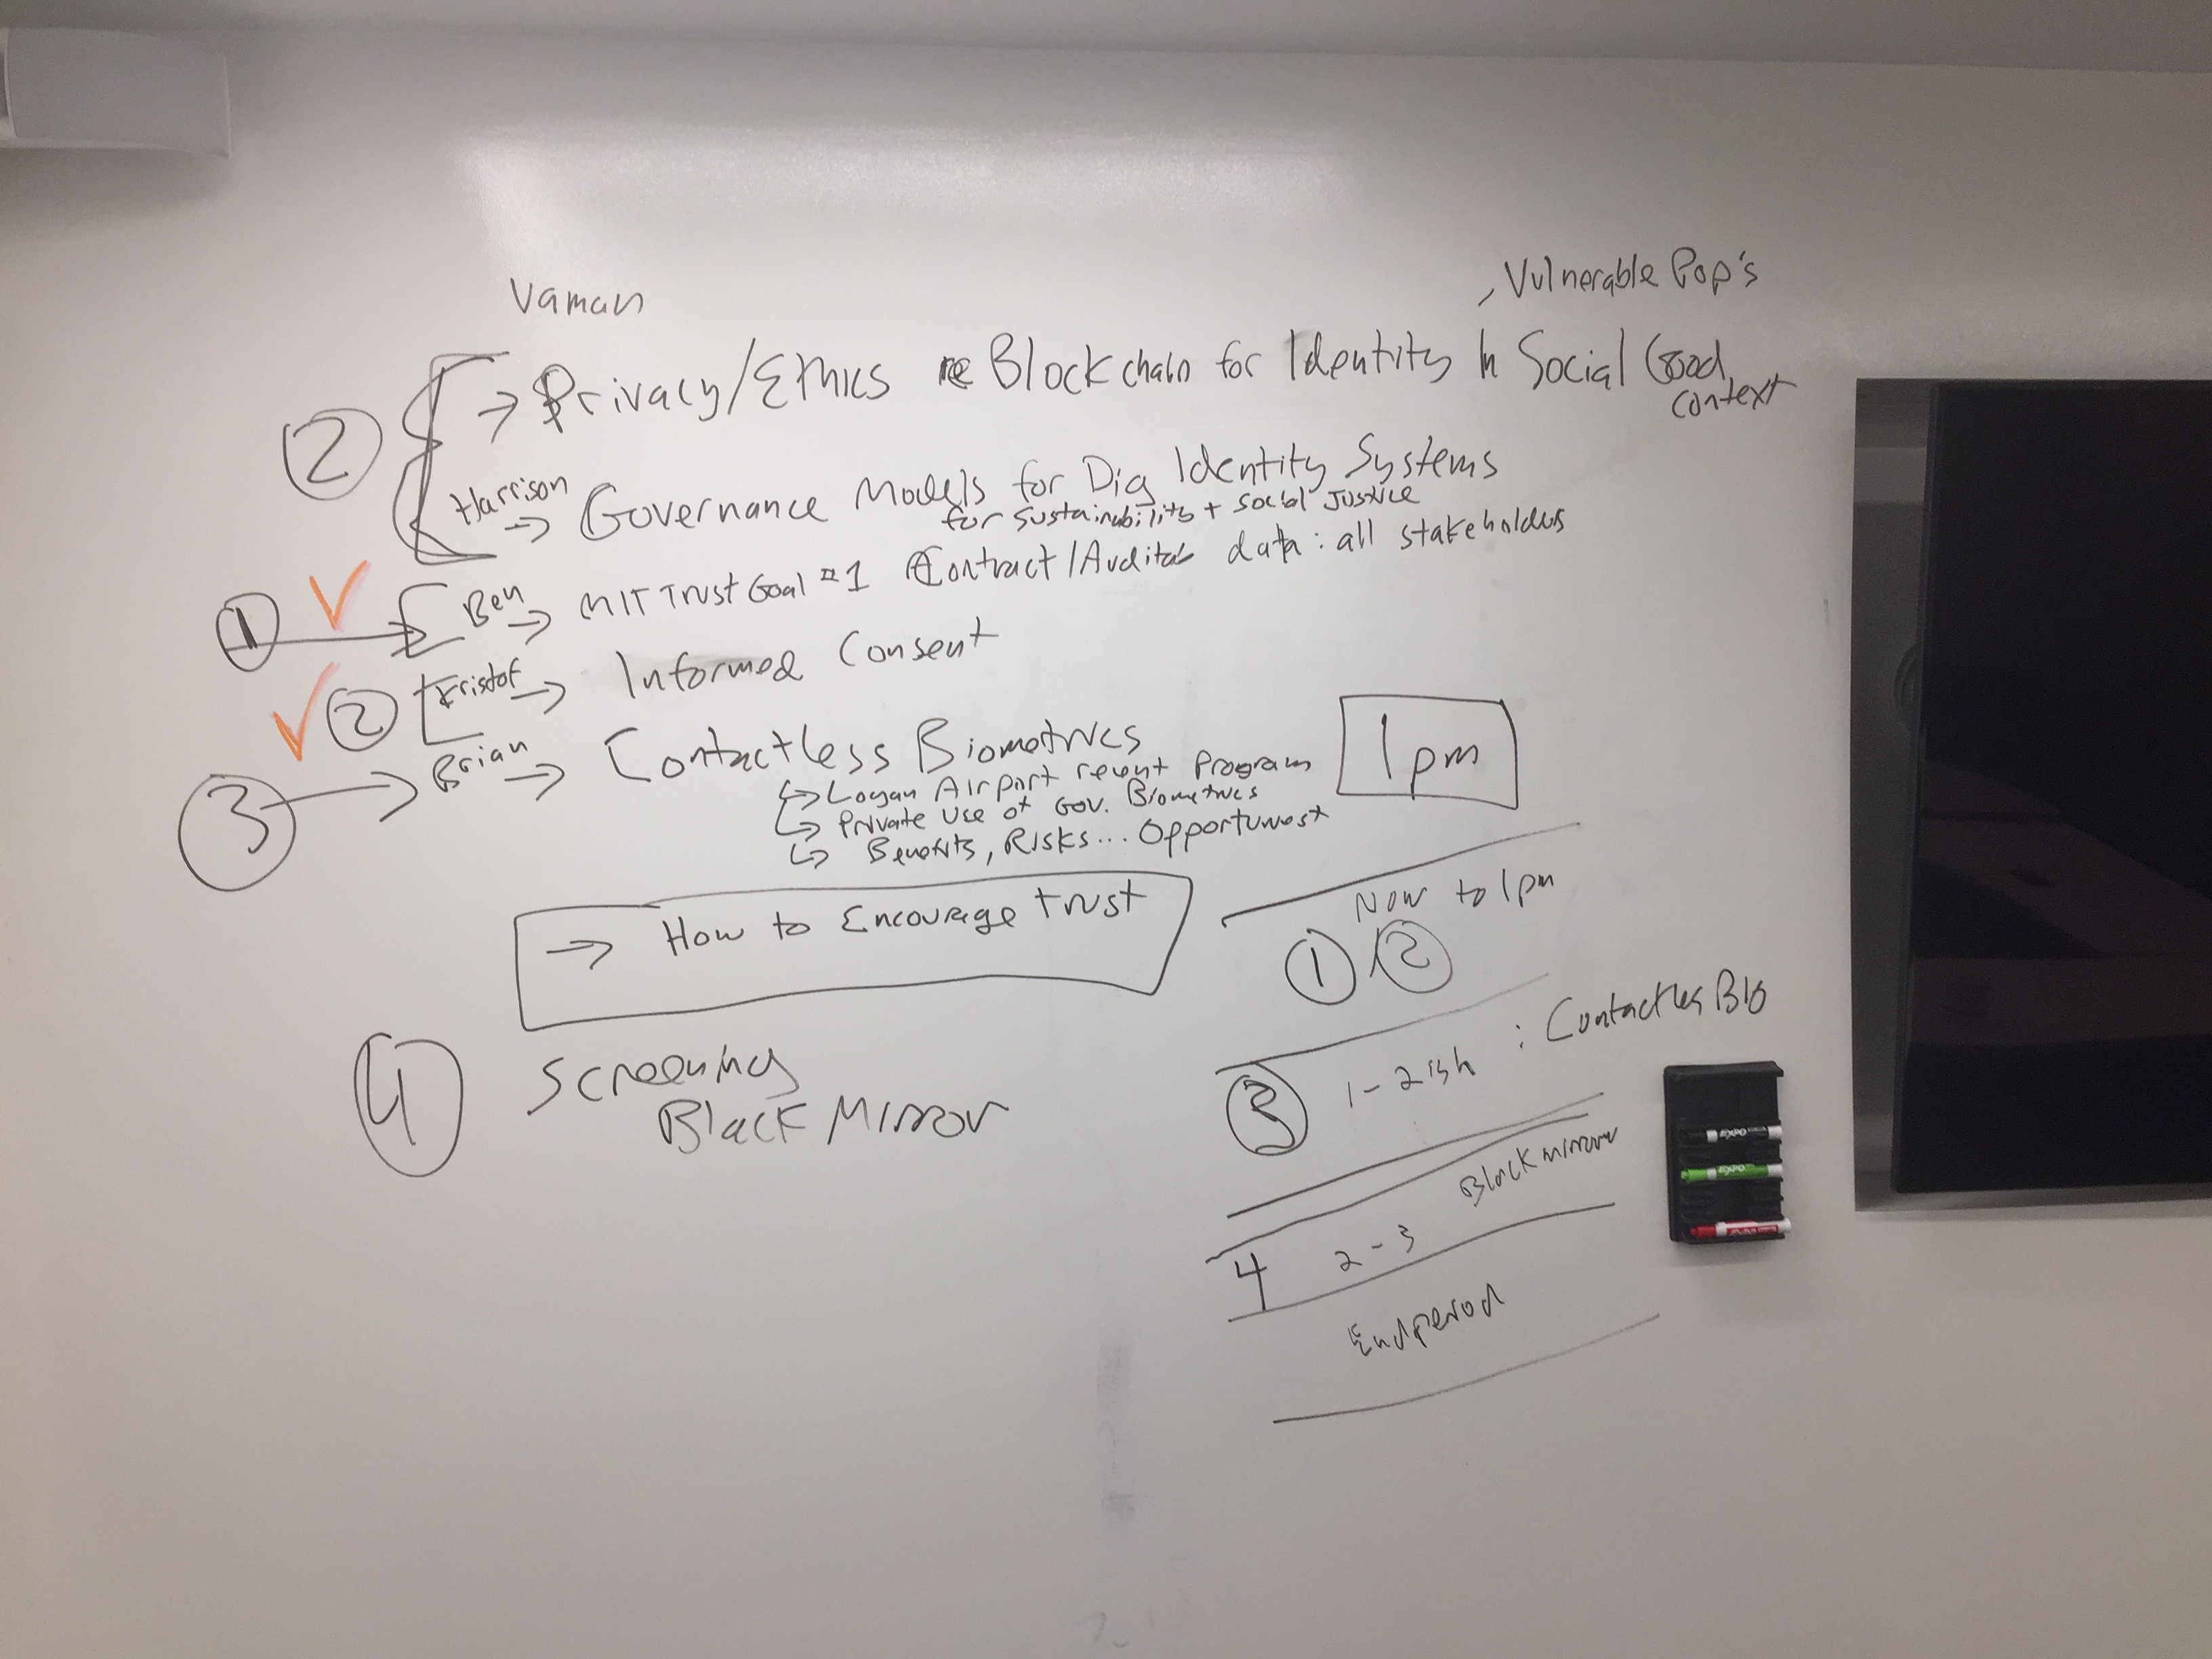 Vaman
, Vulnerable Pop's
② → Privacy/Ethics re Blockchain for Identity In Social Good
context
Harrison → Governance Models for Dig Identity Systems
for Sustainability + Social Justice
① Ben → MIT Trust Goal #1 Contract/Auditab data: all stakeholders
② Kristof → Informed Consent
③ → Brian → Contactless Biometrics
↳ Logan Airport recent Program
↳ Private Use of Gov. Biometrics
↳ Benefits, Risks... Opportunist
1pm
→ How to Encourage trust
④ Screening
Black Mirror
Now to 1pm
① ②
③ 1-2ish : Contactless Bio
4 2-3 Black mirror
Endperod
EXPO
EXPO
EXPO